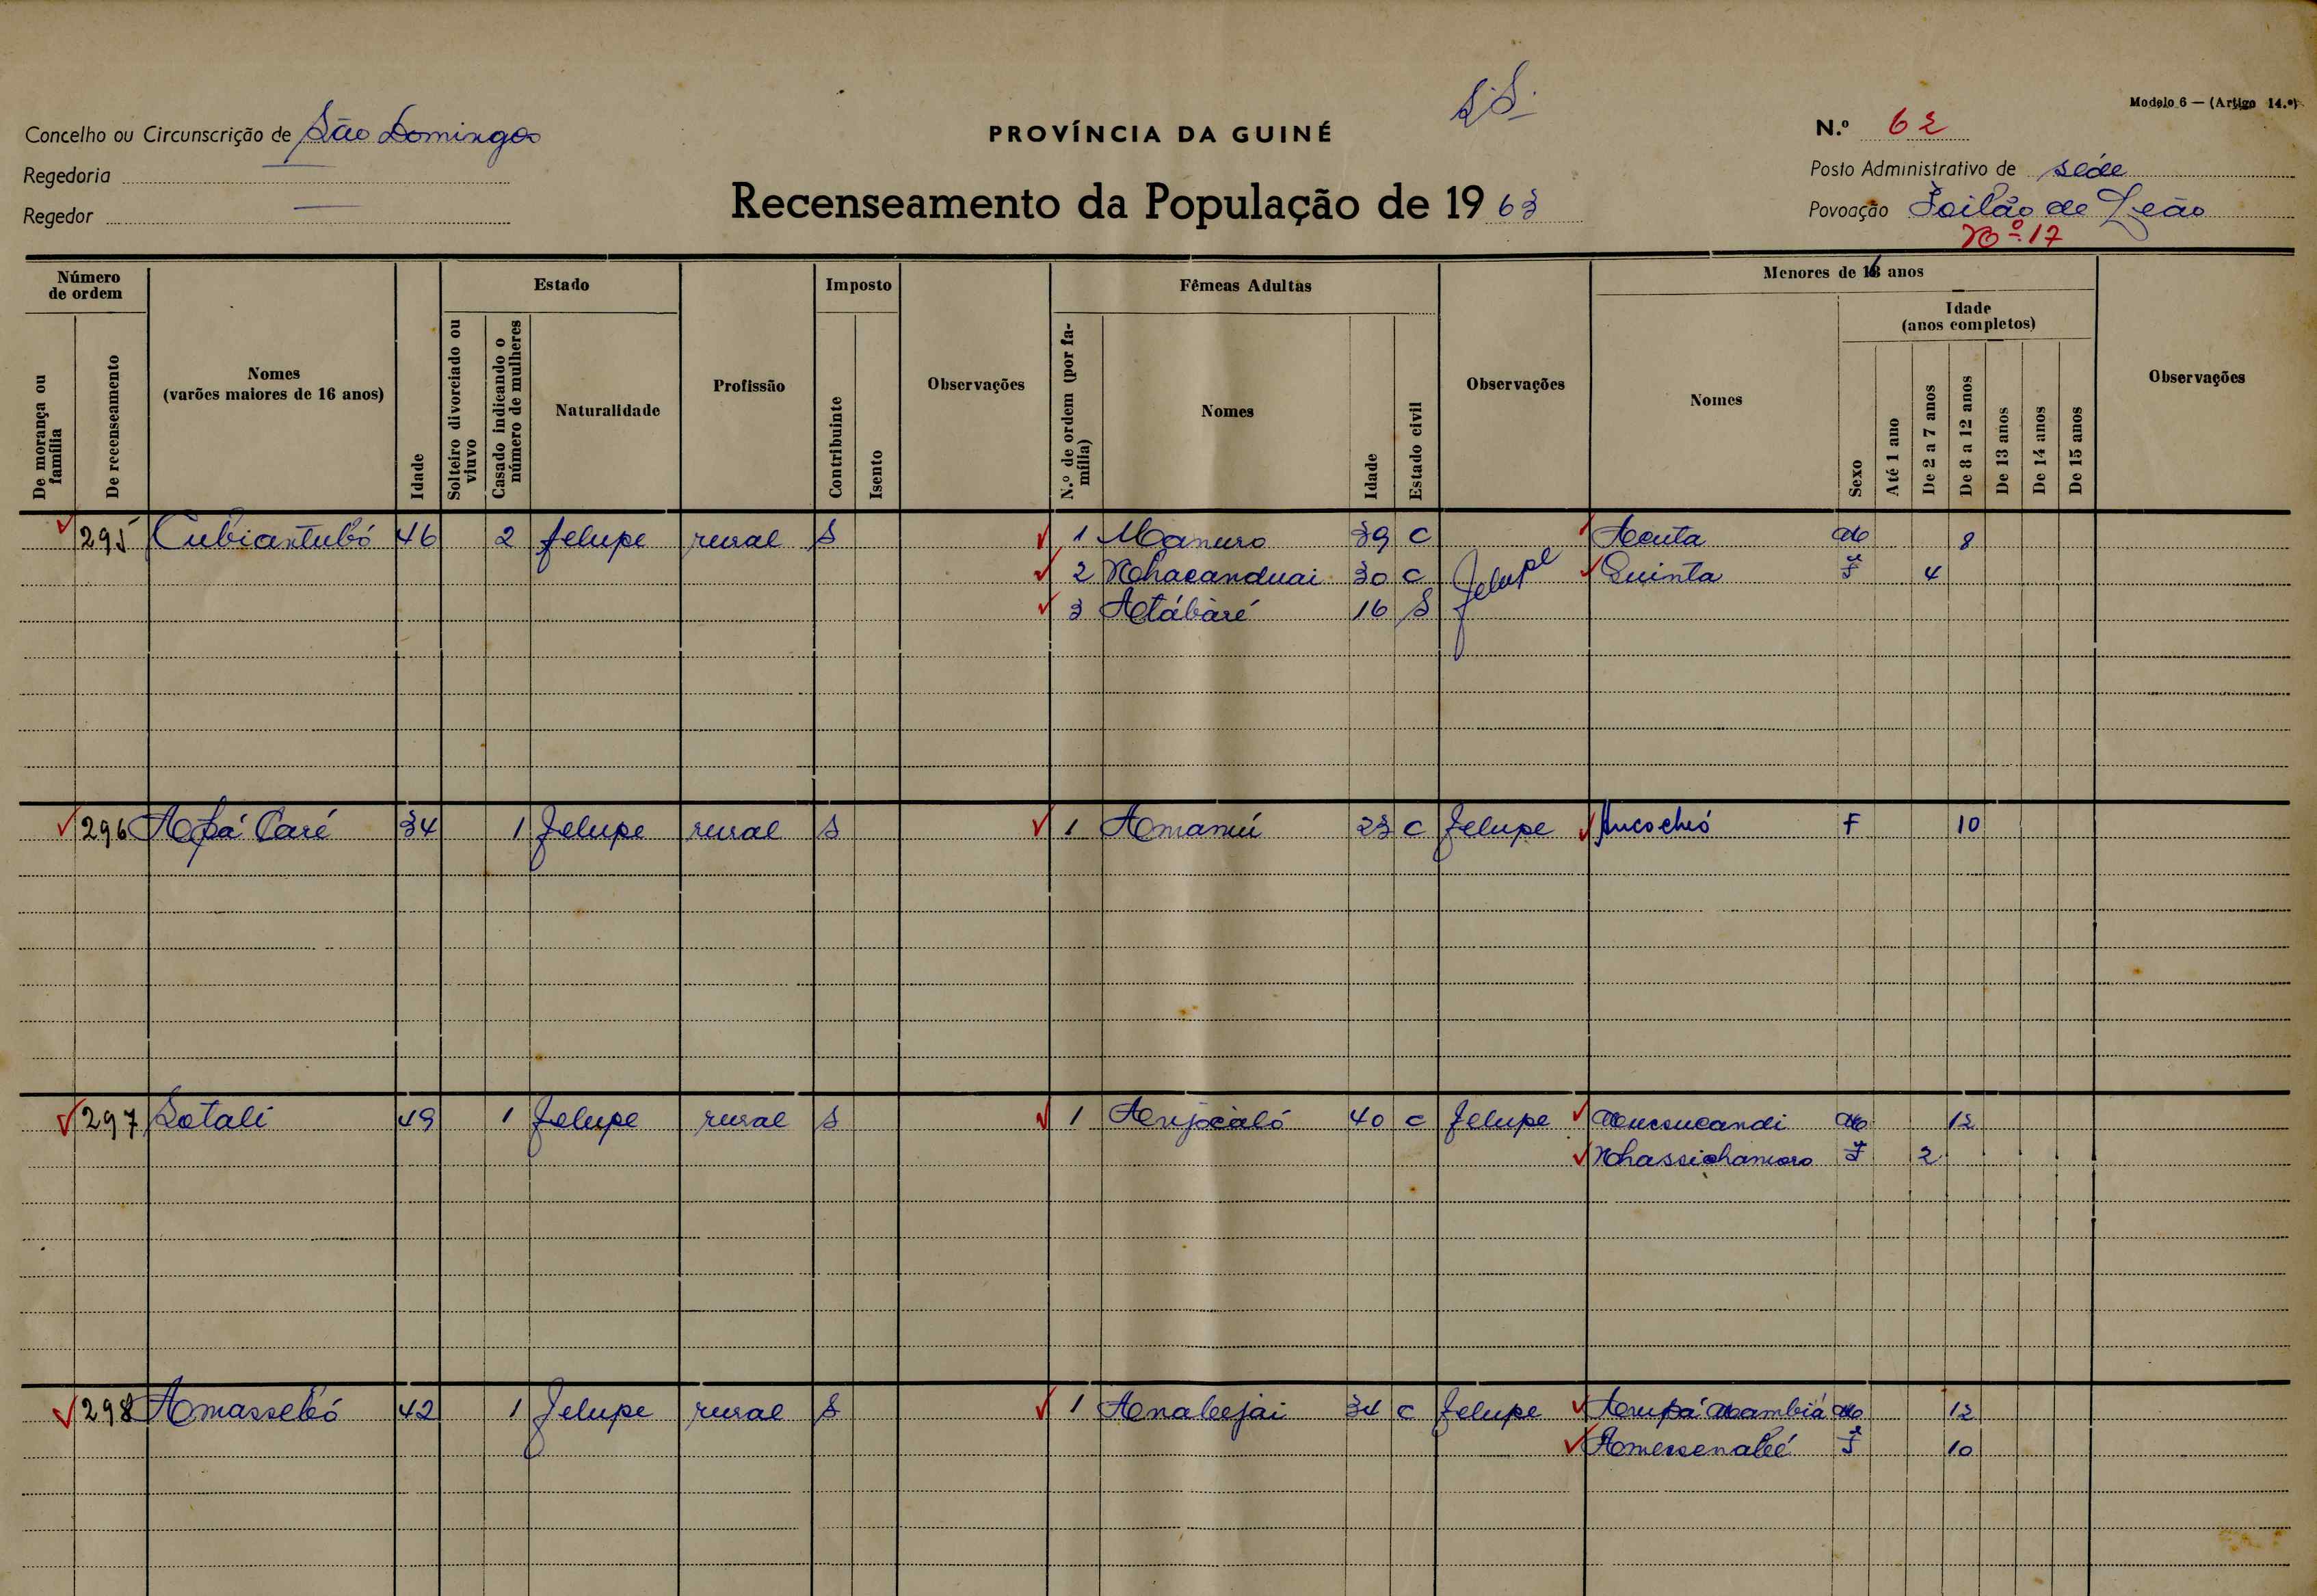 S.S.
Modelo 6 — (Artigo 14.º)
Concelho ou Circunscrição de São Domingos
PROVÍNCIA DA GUINÉ
N.º 62
Regedoria —
Posto Administrativo de Séde
Regedor —
Recenseamento da População de 1963
Povoação Poilão de Leão
Nº 17
Número de ordem
De morança ou família
De recenseamento
Nomes
(varões maiores de 16 anos)
Idade
Estado
Solteiro divorciado ou viuvo
Casado indicando o número de mulheres
Naturalidade
Profissão
Imposto
Contribuinte
Isento
Observações
Fêmeas Adultas
N.º de ordem (por família)
Nomes
Idade
Estado civil
Observações
Menores de 16 anos
Nomes
Sexo
Idade
(anos completos)
Até 1 ano
De 2 a 7 anos
De 8 a 12 anos
De 13 anos
De 14 anos
De 15 anos
Observações
295 Cubiantubó 46 2 felupe rural S 1 Manuro 39 C Acuta M 8
2 Nhacanduai 30 C felupe Quinta F 4
3 Atábáré 16 S
296 Apá Caré 34 1 felupe rural S 1 Amanuí 23 C felupe Ancocheó F 10
297 Lotali 49 1 felupe rural S 1 40 C felupe M 12
Nhassichamoro F 2
298 Amassebó 42 1 felupe rural S 1 Anabejai 34 C felupe M 12
F 10